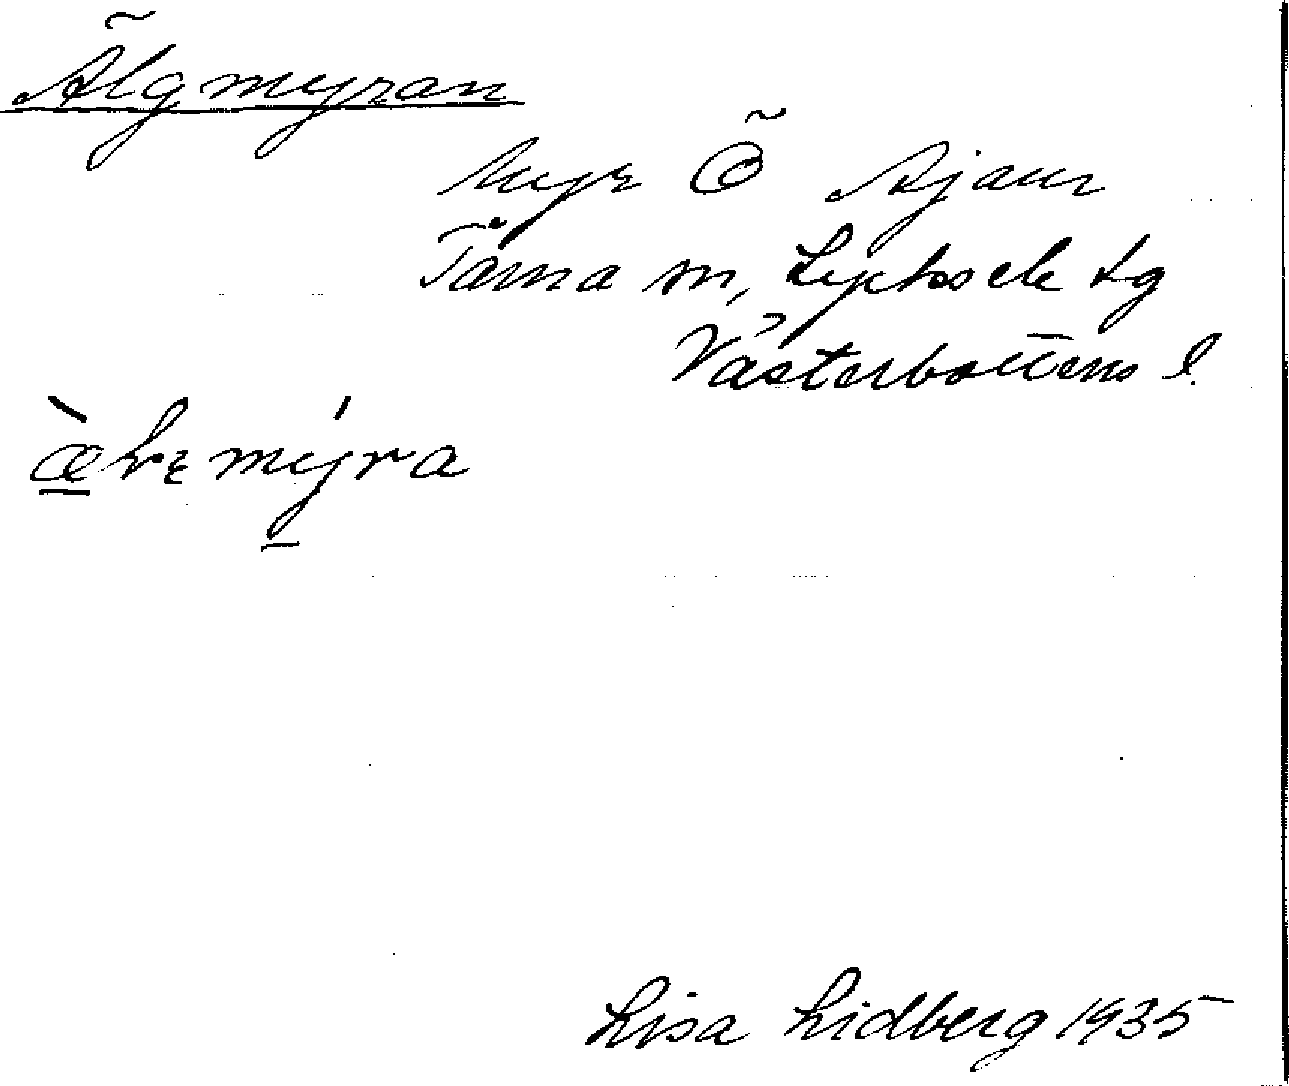 Älgmyran
Myr Ö Ajaur
Tärna sn, Lycksele lg
Västerbottens l.
Lisa Lidberg 1935